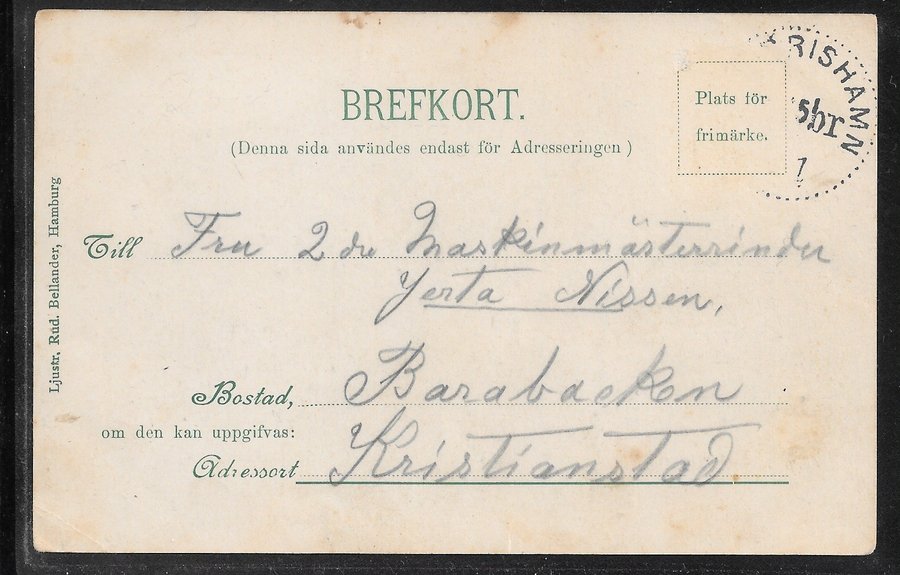 BREFKORT.
(Denna sida användes endast för Adresseringen)
Plats för
frimärke.
RISHAMN
sbr
1
Ljustr, Rud. Bellander, Hamburg
Till Fru 2 dre Maskinmästerrinder
Yerta Nissen,
Bostad, Barabacken
om den kan uppgifvas:
Adressort Kristianstad